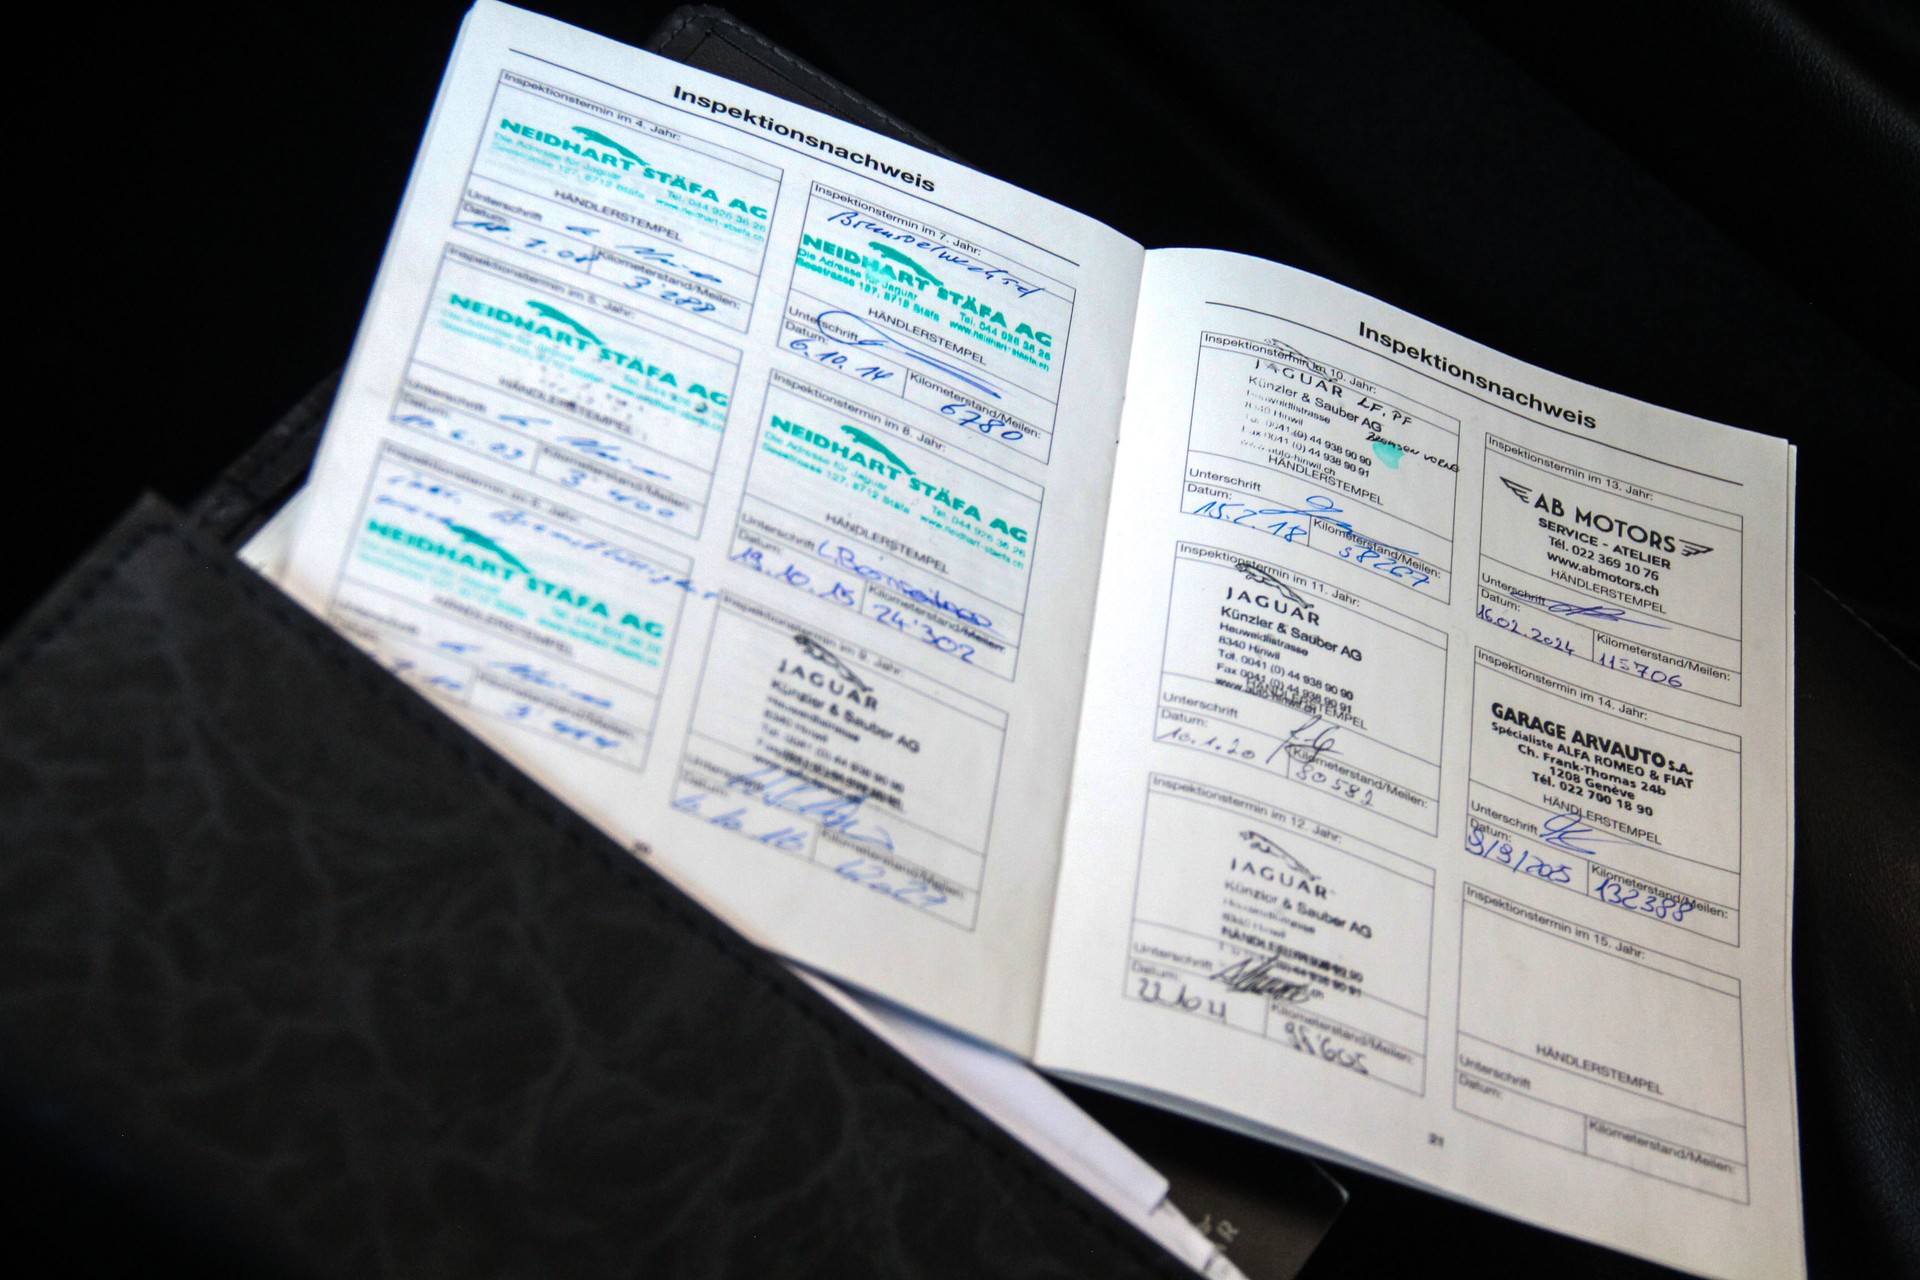 Inspektionsnachweis
Inspektionstermin im 4. Jahr:
NEIDHART STÄFA AG
Die Adresse für Jaguar Tel. 044 926 36 26
Seestrasse 127, 8712 Stäfa www.neidhart-staefa.ch
HÄNDLERSTEMPEL
Unterschrift
Datum:
Kilometerstand/Meilen:
3'288
Inspektionstermin im 5. Jahr:
NEIDHART STÄFA AG
HÄNDLERSTEMPEL
Unterschrift
Datum:
10.6.09
Kilometerstand/Meilen:
3'400
Inspektionstermin im 6. Jahr:
NEIDHART STÄFA AG
HÄNDLERSTEMPEL
Unterschrift
Kilometerstand/Meilen:
Inspektionstermin im 7. Jahr:
NEIDHART STÄFA AG
Die Adresse für Jaguar Tel. 044 926 36 26
Seestrasse 127, 8712 Stäfa www.neidhart-staefa.ch
HÄNDLERSTEMPEL
Unterschrift
Datum:
6.10.14
Kilometerstand/Meilen:
6780
Inspektionstermin im 8. Jahr:
NEIDHART STÄFA AG
Die Adresse für Jaguar Tel. 044 926 36 26
Seestrasse 127, 8712 Stäfa www.neidhart-staefa.ch
HÄNDLERSTEMPEL
Unterschrift
Datum:
19.10.15
Kilometerstand/Meilen:
24'302
Inspektionstermin im 9. Jahr:
JAGUAR
Künzler & Sauber AG
Hauweidlistrasse
8340 Hinwil
Tel. 0041 (0) 44 938 90 90
Unterschrift
Datum:
Kilometerstand/Meilen:
Inspektionsnachweis
Inspektionstermin im 10. Jahr:
JAGUAR LF. PF
Künzler & Sauber AG
Hauweidlistrasse
8340 Hinwil
Tel. 0041 (0) 44 938 90 90
Fax 0041 (0) 44 938 90 91
www.auto-hinwil.ch
HÄNDLERSTEMPEL
Unterschrift
Datum:
15.2.18
Kilometerstand/Meilen:
58267
Inspektionstermin im 11. Jahr:
JAGUAR
Künzler & Sauber AG
Hauweidlistrasse
8340 Hinwil
Tel. 0041 (0) 44 938 90 90
Fax 0041 (0) 44 938 90 91
www.auto-hinwil.ch
HÄNDLERSTEMPEL
Unterschrift
Datum:
10.1.20
Kilometerstand/Meilen:
80582
Inspektionstermin im 12. Jahr:
JAGUAR
Künzler & Sauber AG
Hauweidlistrasse
8340 Hinwil
HÄNDLERSTEMPEL
Unterschrift
Datum:
22.10 21
Kilometerstand/Meilen:
95'605
Inspektionstermin im 13. Jahr:
AB MOTORS
SERVICE - ATELIER
Tél. 022 369 10 76
www.abmotors.ch
HÄNDLERSTEMPEL
Unterschrift
Datum:
16.02.2024
Kilometerstand/Meilen:
115706
Inspektionstermin im 14. Jahr:
GARAGE ARVAUTO S.A.
Spécialiste ALFA ROMEO & FIAT
Ch. Frank-Thomas 24b
1208 Genève
Tél. 022 700 18 90
HÄNDLERSTEMPEL
Unterschrift
Datum:
9/9/2025
Kilometerstand/Meilen:
132388
Inspektionstermin im 15. Jahr:
HÄNDLERSTEMPEL
Unterschrift
Datum:
Kilometerstand/Meilen:
21